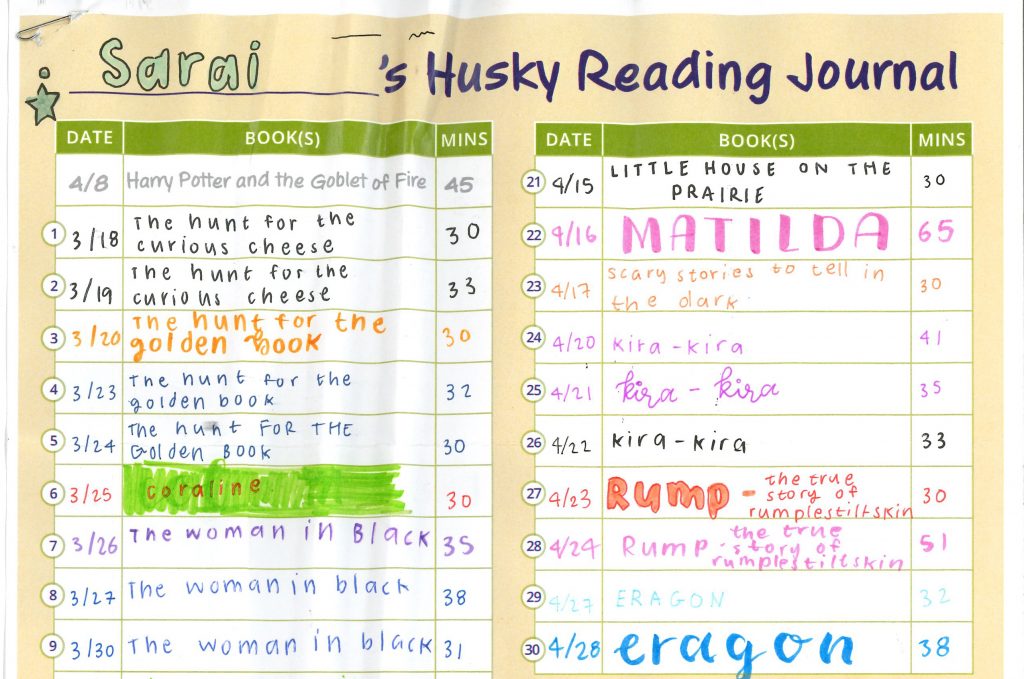 Sarai 's Husky Reading Journal
DATE BOOK(S) MINS
4/8 Harry Potter and the Goblet of Fire 45
1 3/18 The hunt for the
curious cheese 30
2 3/19 The hunt for the
curious cheese 33
3 3/20 The hunt for the
golden book 30
4 3/23 The hunt for the
golden book 32
5 3/24 The hunt FOR THE
Golden BOOK 30
6 3/25 coraline 30
7 3/26 The woman in Black 35
8 3/27 The woman in black 38
9 3/30 The woman in black 31
DATE BOOK(S) MINS
21 4/15 LITTLE HOUSE ON THE
PRAIRIE 30
22 4/16 MATILDA 65
23 4/17 scary stories to tell in
the dark 30
24 4/20 kira-kira 41
25 4/21 kira-kira 35
26 4/22 kira-kira 33
27 4/23 RUMP - the true
story of
rumplestiltskin 30
28 4/24 Rump - the true
story of
rumplestiltskin 51
29 4/27 ERAGON 32
30 4/28 eragon 38